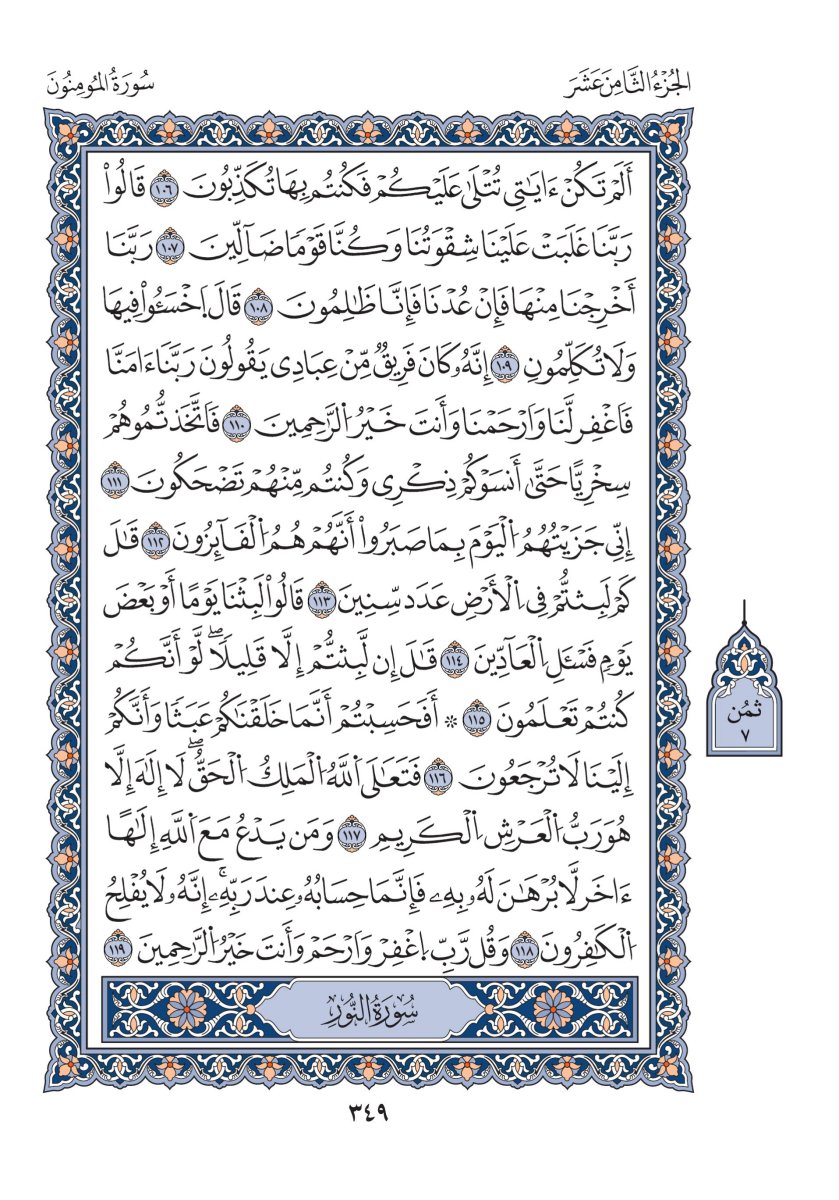 الجُزْءُ الثَّامِنَ عَشَرَ
سُورَةُ المُومِنُونَ
أَلَمْ تَكُنْ ءَايَٰتِى تُتْلَىٰ عَلَيْكُمْ فَكُنتُم بِهَا تُكَذِّبُونَ ١٠٦ قَالُواْ
رَبَّنَا غَلَبَتْ عَلَيْنَا شِقْوَتُنَا وَكُنَّا قَوْمٗا ضَآلِّينَ ١٠٧ رَبَّنَا
أَخْرِجْنَا مِنْهَا فَإِنْ عُدْنَا فَإِنَّا ظَٰلِمُونَ ١٠٨ قَالَ اَ۪خْسَـُٔواْ فِيهَا
وَلَا تُكَلِّمُونِ ١٠٩ إِنَّهُۥ كَانَ فَرِيقٞ مِّنْ عِبَادِى يَقُولُونَ رَبَّنَا ءَامَنَّا
فَاَغْفِر لَّنَا وَاَرْحَمْنَا وَأَنتَ خَيْرُ اُ۬لرَّٰحِمِينَ ١١٠ فَاَتَّخَذتُّمُوهُمْ
سِخْرِيًّا حَتَّىٰ أَنسَوْكُمْ ذِكْرِى وَكُنتُم مِّنْهُمْ تَضْحَكُونَ ١١١
إِنِّى جَزَيْتُهُمُ اُ۬لْيَوْمَ بِمَا صَبَرُواْ أَنَّهُمْ هُمُ اُ۬لْفَآئِزُونَ ١١٢ قَٰلَ
كَمْ لَبِثتُّمْ فِى اِ۬لْأَرْضِ عَدَد سِّنِينَ ١١٣ قَالُواْ لَبِثْنَا يَوْمًا أَوْ بَعْضَ
يَوْمٖ فَسْـَٔلِ اِ۬لْعَآدِّينَ ١١٤ قَٰلَ إِن لَّبِثتُّمْ إِلَّا قَلِيلٗاۖ لَّوْ أَنَّكُمْ
كُنتُمْ تَعْلَمُونَ ١١٥ * أَفَحَسِبْتُمْ أَنَّمَا خَلَقْنَٰكُمْ عَبَثٗا وَأَنَّكُمْ
إِلَيْنَا لَا تُرْجَعُونَ ١١٦ فَتَعَٰلَى اَ۬للَّهُ اُ۬لْمَلِكُ اُ۬لْحَقُّۖ لَا إِلَٰهَ إِلَّا
هُوَ رَبُّ اُ۬لْعَرْشِ اِ۬لْكَرِيمِ ١١٧ وَمَن يَدْعُ مَعَ اَ۬للَّهِ إِلَٰهًا
ءَاخَرَ لَا بُرْهَٰنَ لَهُۥ بِهِۦ فَإِنَّمَا حِسَابُهُۥ عِندَ رَبِّهِۦۚ إِنَّهُۥ لَا يُفْلِحُ
اُ۬لْكَٰفِرُونَ ١١٨ وَقُل رَّبِّ اِ۪غْفِرْ وَاَرْحَمْ وَأَنتَ خَيْرُ اُ۬لرَّٰحِمِينَ ١١٩
ثمُن
٧
سُورَةُ النُّورِ
٣٤٩